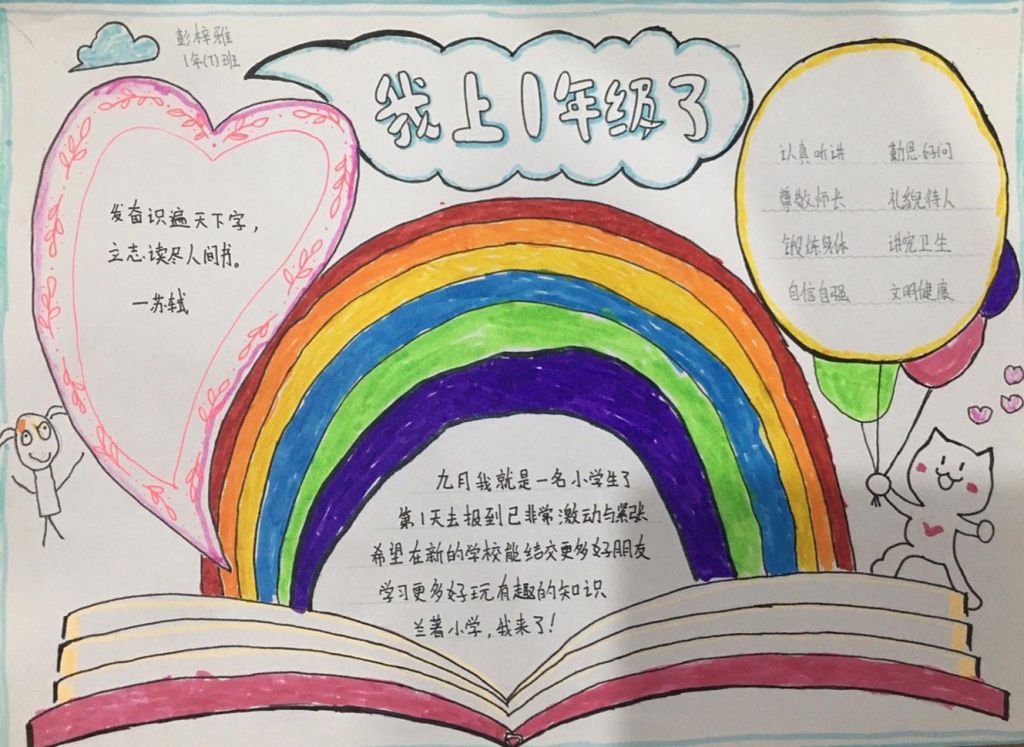 彭梓雅
1年(7)班
我上1年级了
发奋识遍天下字，
立志读尽人间书。
—苏轼
认真听讲 勤思好问
尊敬师长 礼貌待人
锻炼身体 讲究卫生
自信自强 文明健康
九月我就是一名小学生了
第1天去报到已非常激动与紧张
希望在新的学校能结交更多好朋友
学习更多好玩有趣的知识
兰著小学，我来了!